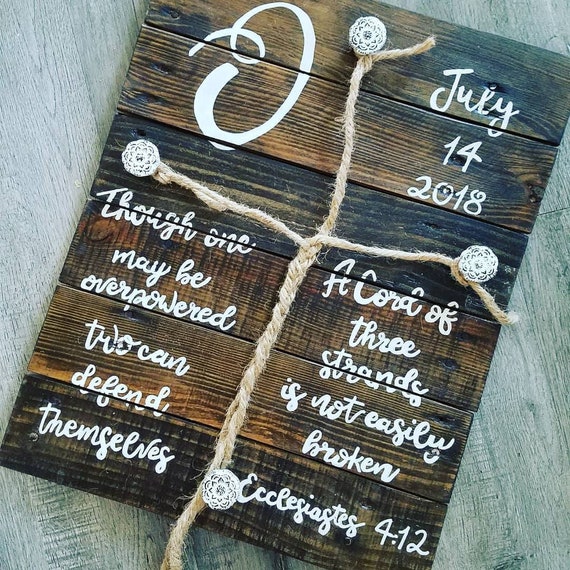 O
July
14
2018
Though one
may be
overpowered
two can
defend
themselves
A Cord of
three
strands
is not easily
broken
Ecclesiastes 4:12